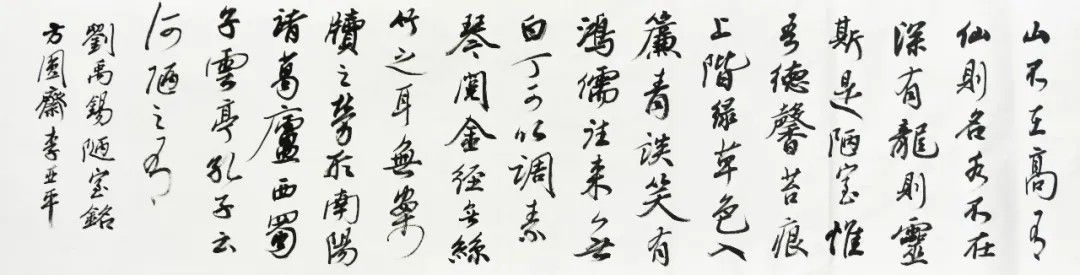 山不在高有
仙則名水不在
深有龍則靈
斯是陋室惟
吾德馨苔痕
上階綠草色入
簾青談笑有
鴻儒往来無
白丁可以調素
琴閱金經無絲
竹之耳無案
牘之勞形南陽
諸葛廬西蜀
子雲亭孔子云
何陋之有
劉禹錫陋室銘
方圓齋李亚平